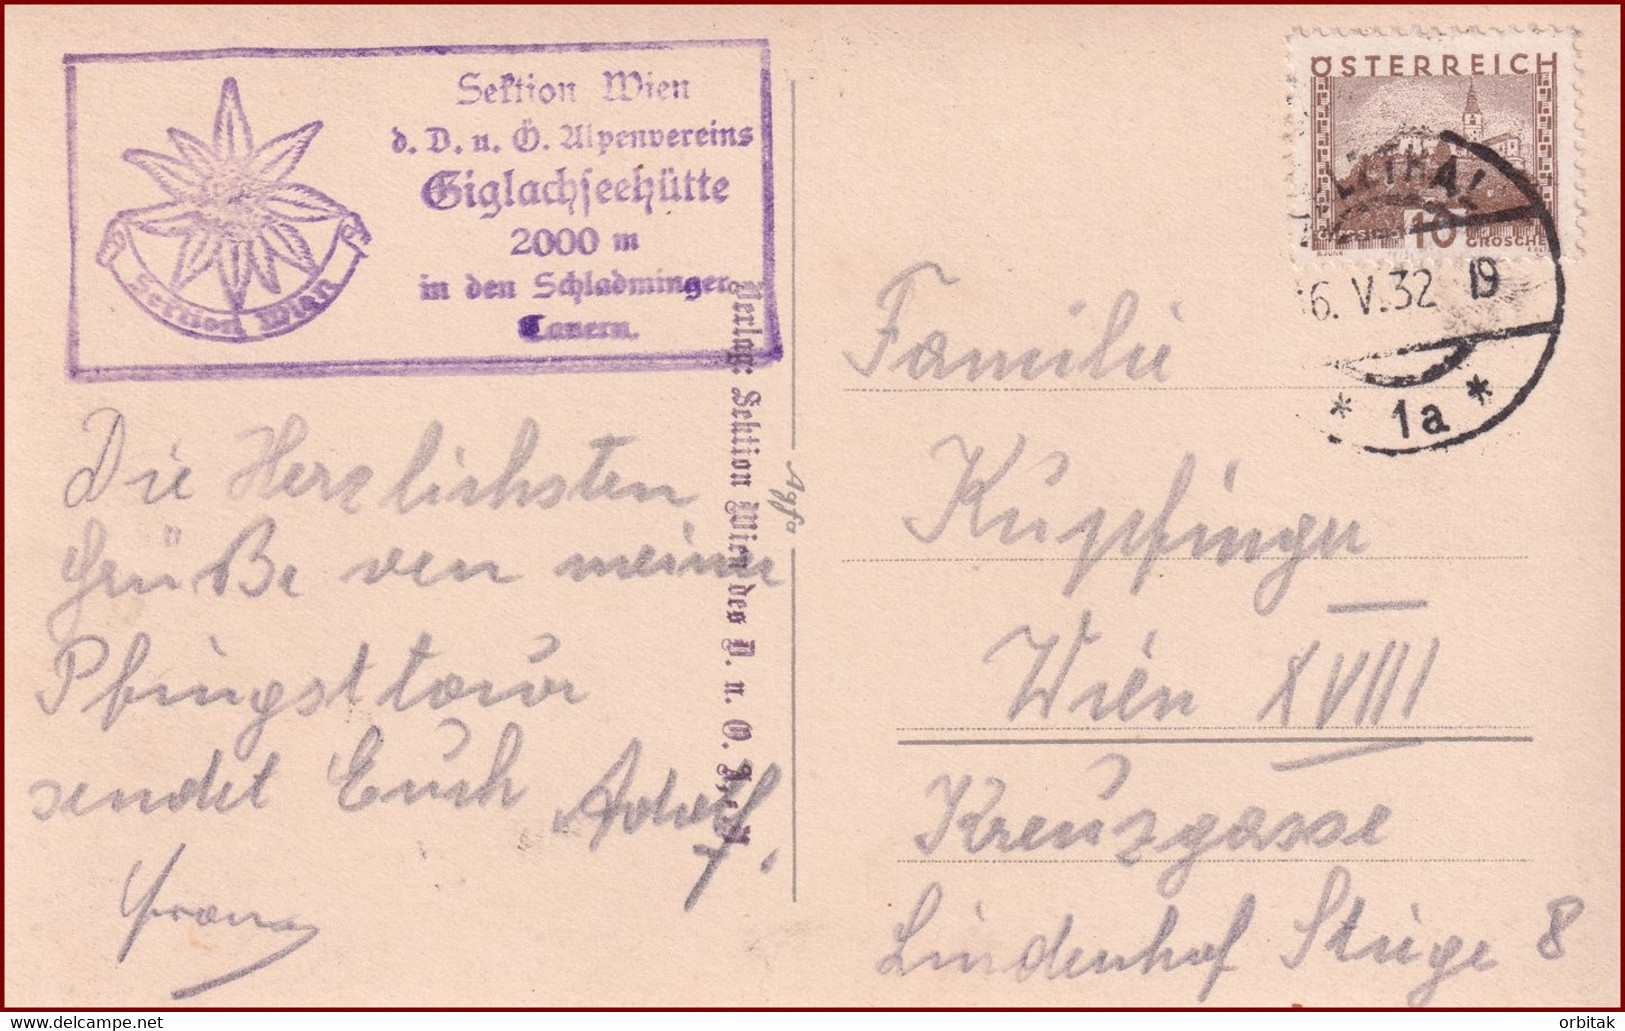 Sektion Wien
d. D. u. Ö. Alpenvereins
Giglachseehütte
2000 m
in den Schladminger
Tauern.
Sektion Wien
Die Herzlichsten
Grüße von meiner
Pfingsttour
sendet Euch Adolf
Franz
Verlag: Sektion Wien des D. u. Ö. A. V.
Agfa
ÖSTERREICH
10
GROSCHEN
6. V. 32 19
* 1a *
Familie
Kupfinger
Wien XVIII
Kreuzgasse
Lindenhof Stiege 8
delcampe.net
orbitak